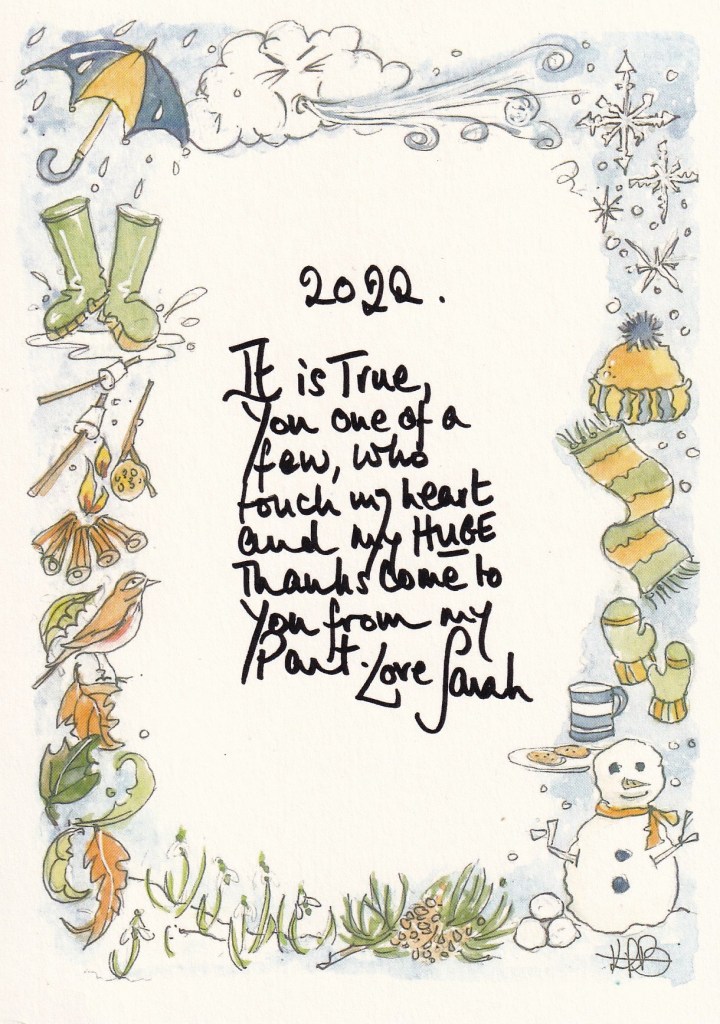 2022.
It is True,
You one of a
few, who
touch my heart
and my HUGE
Thanks come to
You from my
Part. Love Sarah
KRB